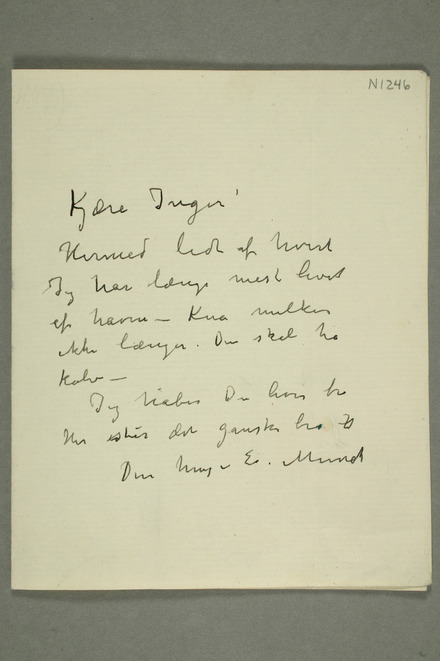 N1246
Kjære Inger!
Hermed lidt af hvert
Jeg har længe mest levet
af havre – Kua melker
ikke længer. Den skal ha
kalv –
Jeg haber Du har bra
Her står det ganske bra
Din E. Munch